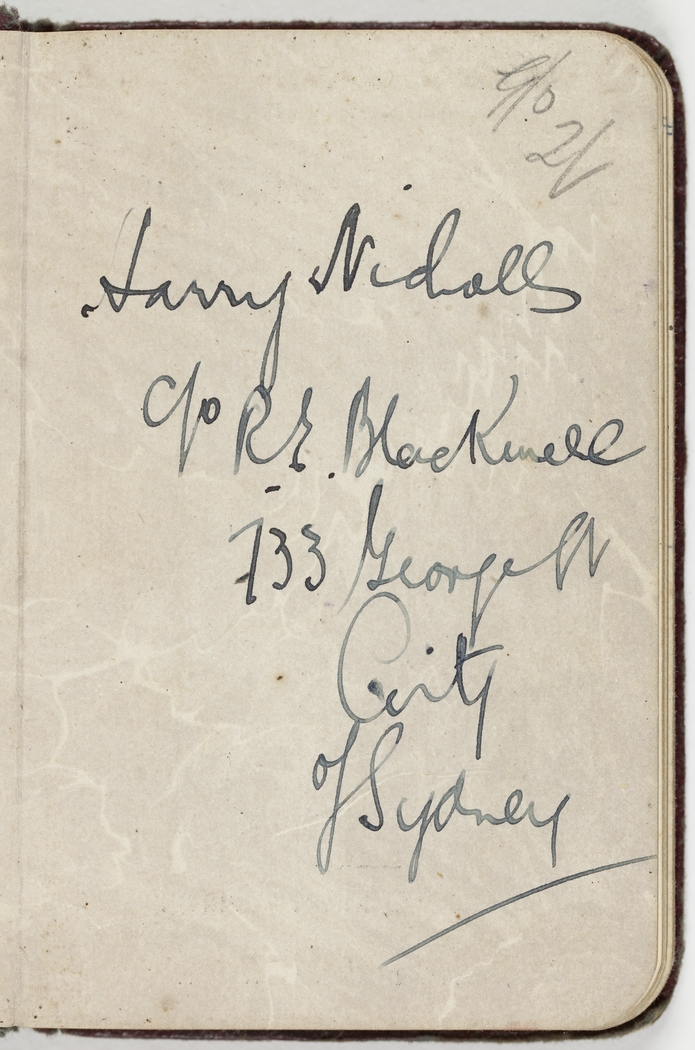 c/o
2/
Harry Nicholls
c/o R.E. Blackwell
733 George St
City
of Sydney